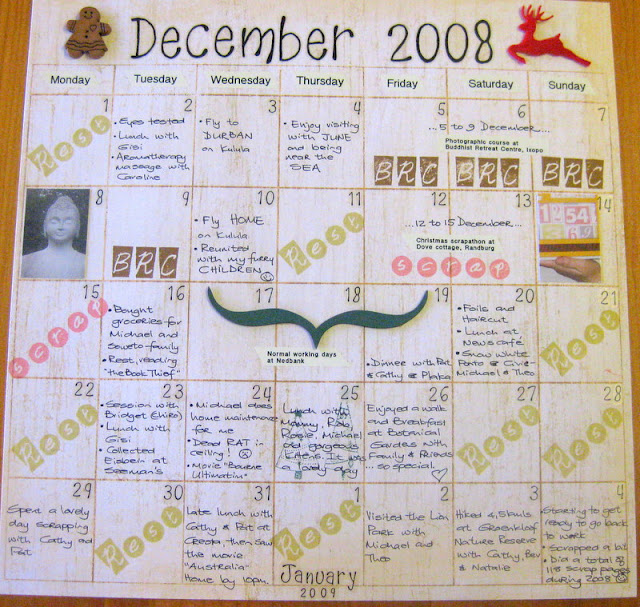 December 2008
Monday Tuesday Wednesday Thursday Friday Saturday Sunday
1
Rest
2
• Eyes tested
• Lunch with
Gisi
• Aromatherapy
massage with
Caroline
3
• Fly to
DURBAN
on Kulula
4
• Enjoy visiting
with JUNE
and being
near the
SEA
5
6
7
...5 to 9 December...
Photographic course at
Buddhist Retreat Centre, Ixopo
BRC
BRC
BRC
8
9
BRC
10
• Fly HOME
on Kulula
• Reunited
with my furry
CHILDREN
11
Rest
12
13
...12 to 15 December...
Christmas scrapathon at
Dove cottage, Randburg
scrap
14
15
scrap
16
• Bought
groceries for
Michael and
Soweto-family
• Rest, reading
"the Book Thief"
17
18
19
Normal working days
at Nedbank
• Dinner with Pat
& Cathy &
20
• Foils and
Haircut
• Lunch at
News café
• Snow White
Panto @ Civic-
Michael & Theo
21
Rest
22
Rest
23
• Session with
Bridget (Chiro)
• Lunch with
Gisi
• Collected
Eisbein at
Seeman's
24
• Michael does
home maintenance
for me
• Dead RAT in
ceiling!
• Movie "Bourne
Ultimatim"
25
Lunch with
Mommy, Rob,
Rosie, Michael
and gorgeous
It was
a lovely day
26
Enjoyed a walk
and Breakfast
at Botanical
Gardens with
Family & Friends
... so special
27
Rest
28
Rest
29
Spent a lovely
day scrapping
with Cathy and
Pat
30
Rest
31
Late lunch with
Cathy & Pat at
Cresta, then saw
the movie
"Australia"
Home by 10pm.
1
Rest
January
2009
2
Visited the Lion
Park with
Michael and
Theo
3
Hiked 4,5 hrs
at Groenkloof
Nature Reserve
with Cathy, Bev
& Natalie
4
• Starting to get
ready to go back
to work
• Scrapped a bit
• Did a total of
118 scrap pages
during 2008